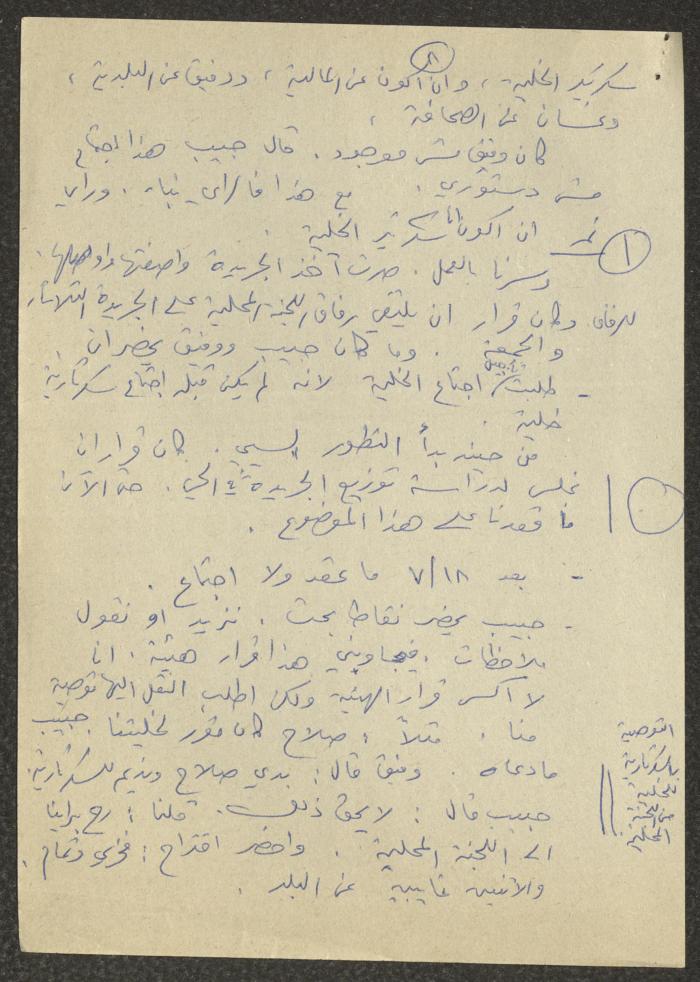 ٨
سكرتير الخلية، وان اكون عن المالية، ورفيق عن البلدية،
وغسان عن الصحافة،
كان وفيق مش موجود. قال حبيب هذا اجتماع
مش دستوري. مع هذا فالراي بتبات. وراي
١ ثم ان اكون انا سكرتير الخلية.
وسرنا بالعمل. صرت آخذ الجريدة واصفتها واوصلها
للرفاق. وكان قرار ان يلتقي رفاق اللجنة المحلية على الجريدة الثلاثاء
والجمعة. وما كان حبيب ووفيق يحضران
- طلبت تأجيل اجتماع الخلية لانه لم يكن قبله اجتماع سكرتارية
خلية.
من حينه بدأ التطور السيئ. كان قرار ان
نجلس لدراسة توزيع الجريدة في الحي. حتى الآن
ما قعدنا على هذا الموضوع.
- بعد ٧/١٨ ما عقد ولا اجتماع.
- حبيب يحضر نقاط بحث. نزيد او نقول
ملاحظات. فيجاوبني هذا قرار هيئة. انا
لا اكسر قرار الهيئة ولكن اطلب النقل اليها توصية
منا. مثلاً: صلاح كان مقرر لخليتنا. حبيب
ما دعاه. وفيق قال: بدي صلاح ونديم للسكرتارية.
حبيب قال: لا يحق ذلك. قلنا: ارفع راينا
الى اللجنة المحلية. واحضر اقتراح: فخري وتمام.
والاثنين غايبين عن البلد.
التوصية
بالسكرتارية
للخلية
من اللجنة
المحلية